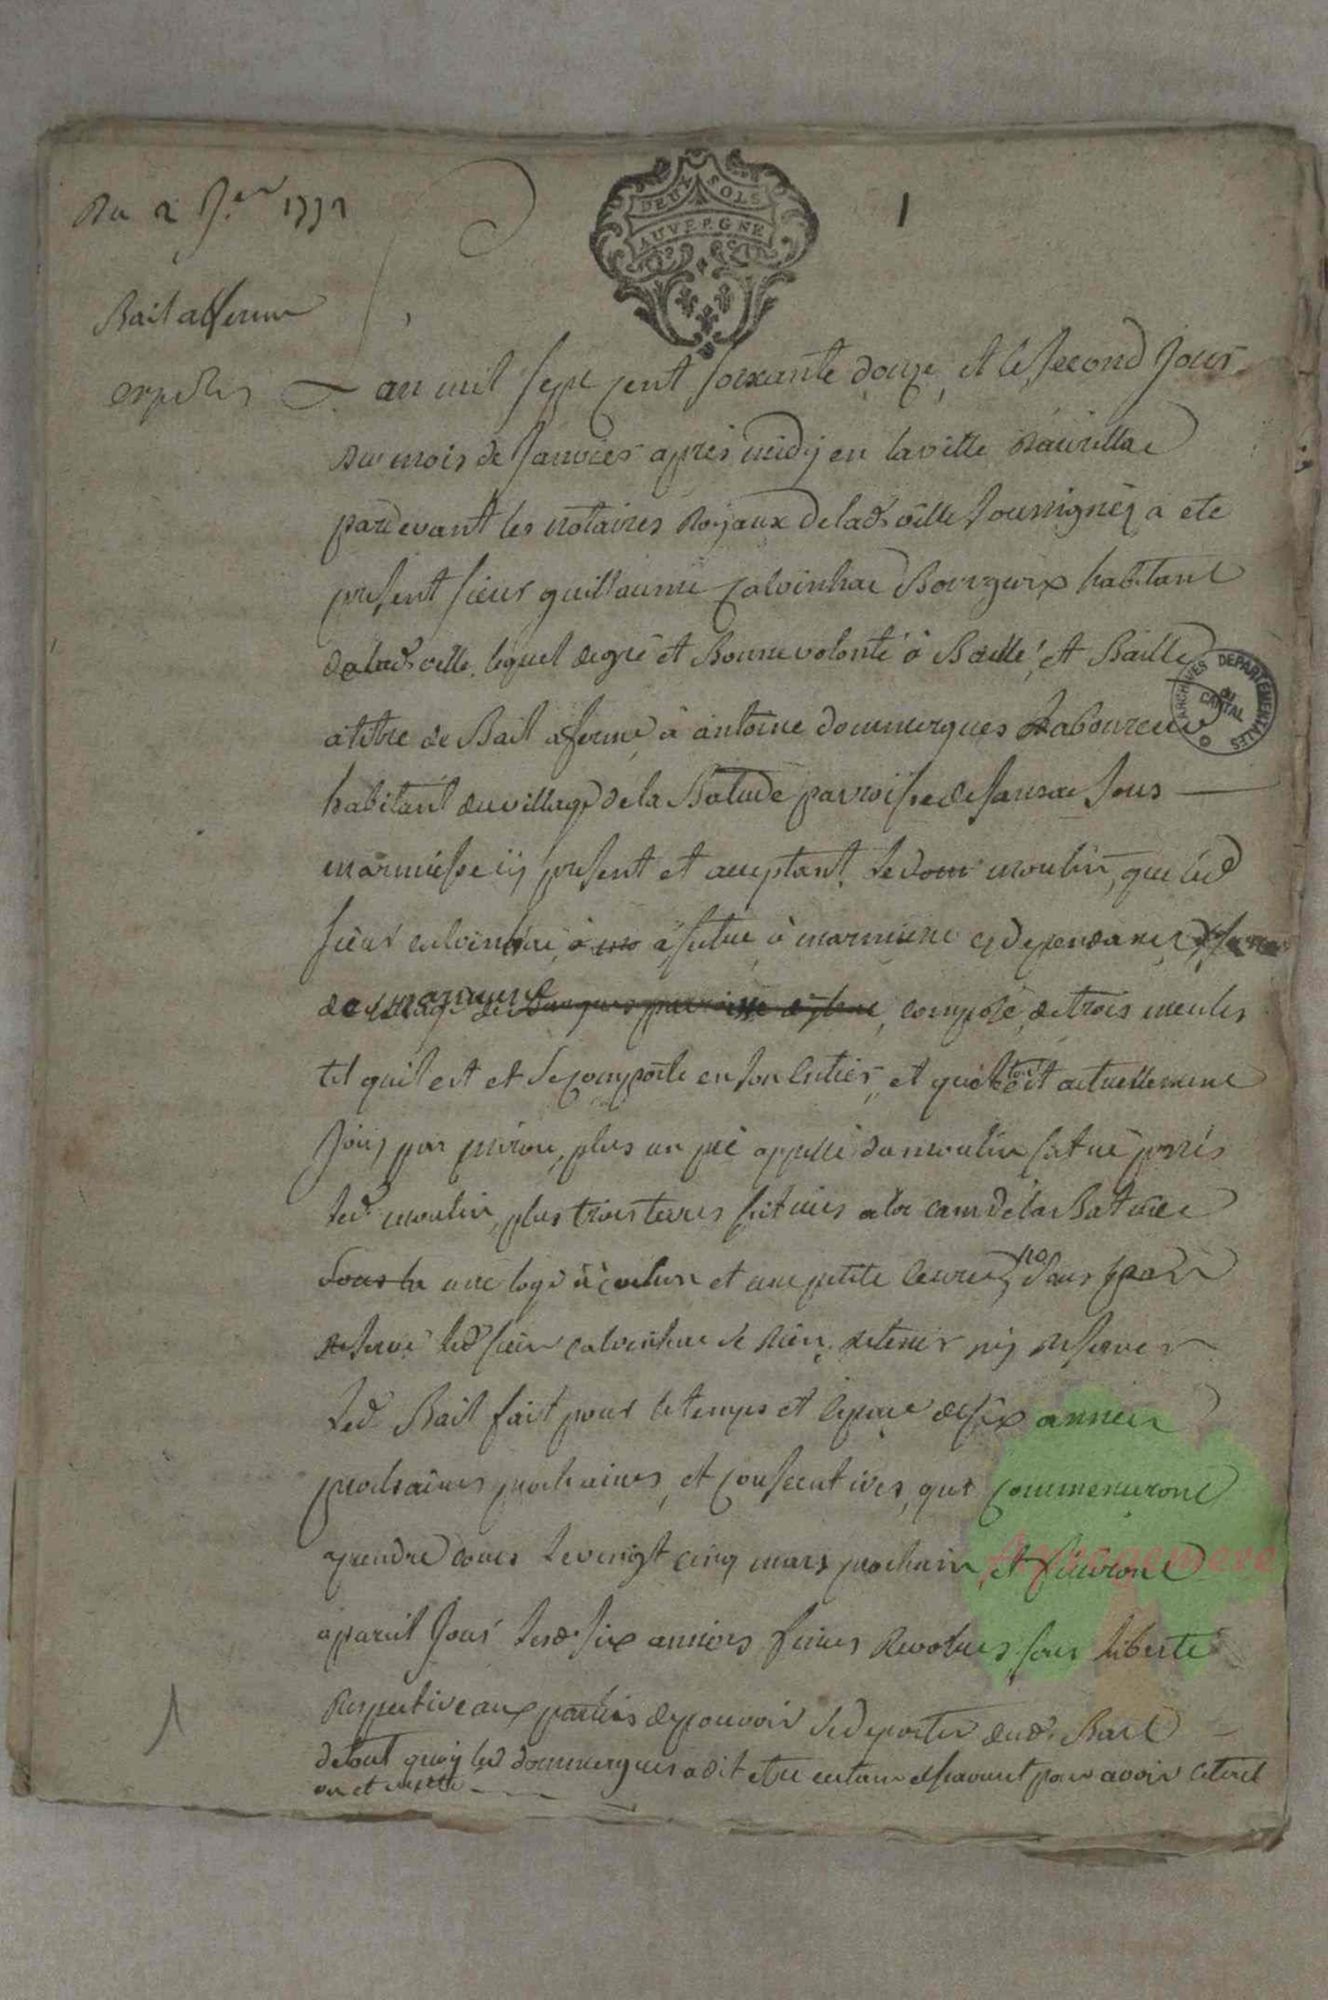 Du 2 J.er 1772
1
DEUX SOLS
AUVERGNE
Bail afferme
L'an mil sept cent soixante douze et le second Jour
du mois de Janvier après midy en la ville d'aurillac
pardevant les notaires Royaux de lad. ville soussignés a eté
present sieur guillaume Calvinhac Bourgeois habitant
de lad. ville, lequel de gré et Bonne volonté à Baillé, et Baille
a titre de Bail afferme à antoine dommergues Laboureur
habitant du village de la Batude parroisse de sansac sous
marmiesse icy present et acceptant, le moulin, que led
sieur calvinhac à situé à
de composé, de trois meules
tel quil est et se comporte en son entier, et actuellement
par plus un pré appellé du moulin situé près
led. moulin, plus trois terres situées a la cam de la Batude
une loge à cochon et une petite sans par
led. sieur calvinhac se rien retenir ny reserver
led. Bail fait pour le temps et espace de six années
prochaines prochaines, et consecutives, qui commenceront
a prendre cours le vingt cinq mars prochain et finiront
a pareil Jour lesd. six années finies Revolues, sans liberté
Respective aux parties de pouvoir se departir dud. Bail
de tout quoy led dommergues a dit etre certain et scavant pour avoir le tout
vu et visitté
ARCHIVES DEPARTEMENTALES
DU
CANTAL
1